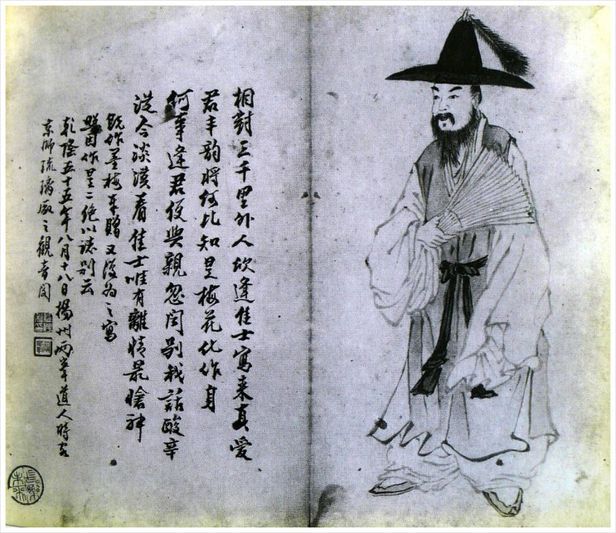 相對三千里外人欣逢佳士寫來真愛
君丰韵將何比知是梅花化作身
何事逢君便與親忽聞別我話酸辛
從今淡漠看佳士唯有離情最愴神
既作墨梅奉贈又復為之寫
照因作是二絕以誌別云
乾隆五十五年八月十八日揚州兩峯道人時客
京師琉璃厰之觀音閣